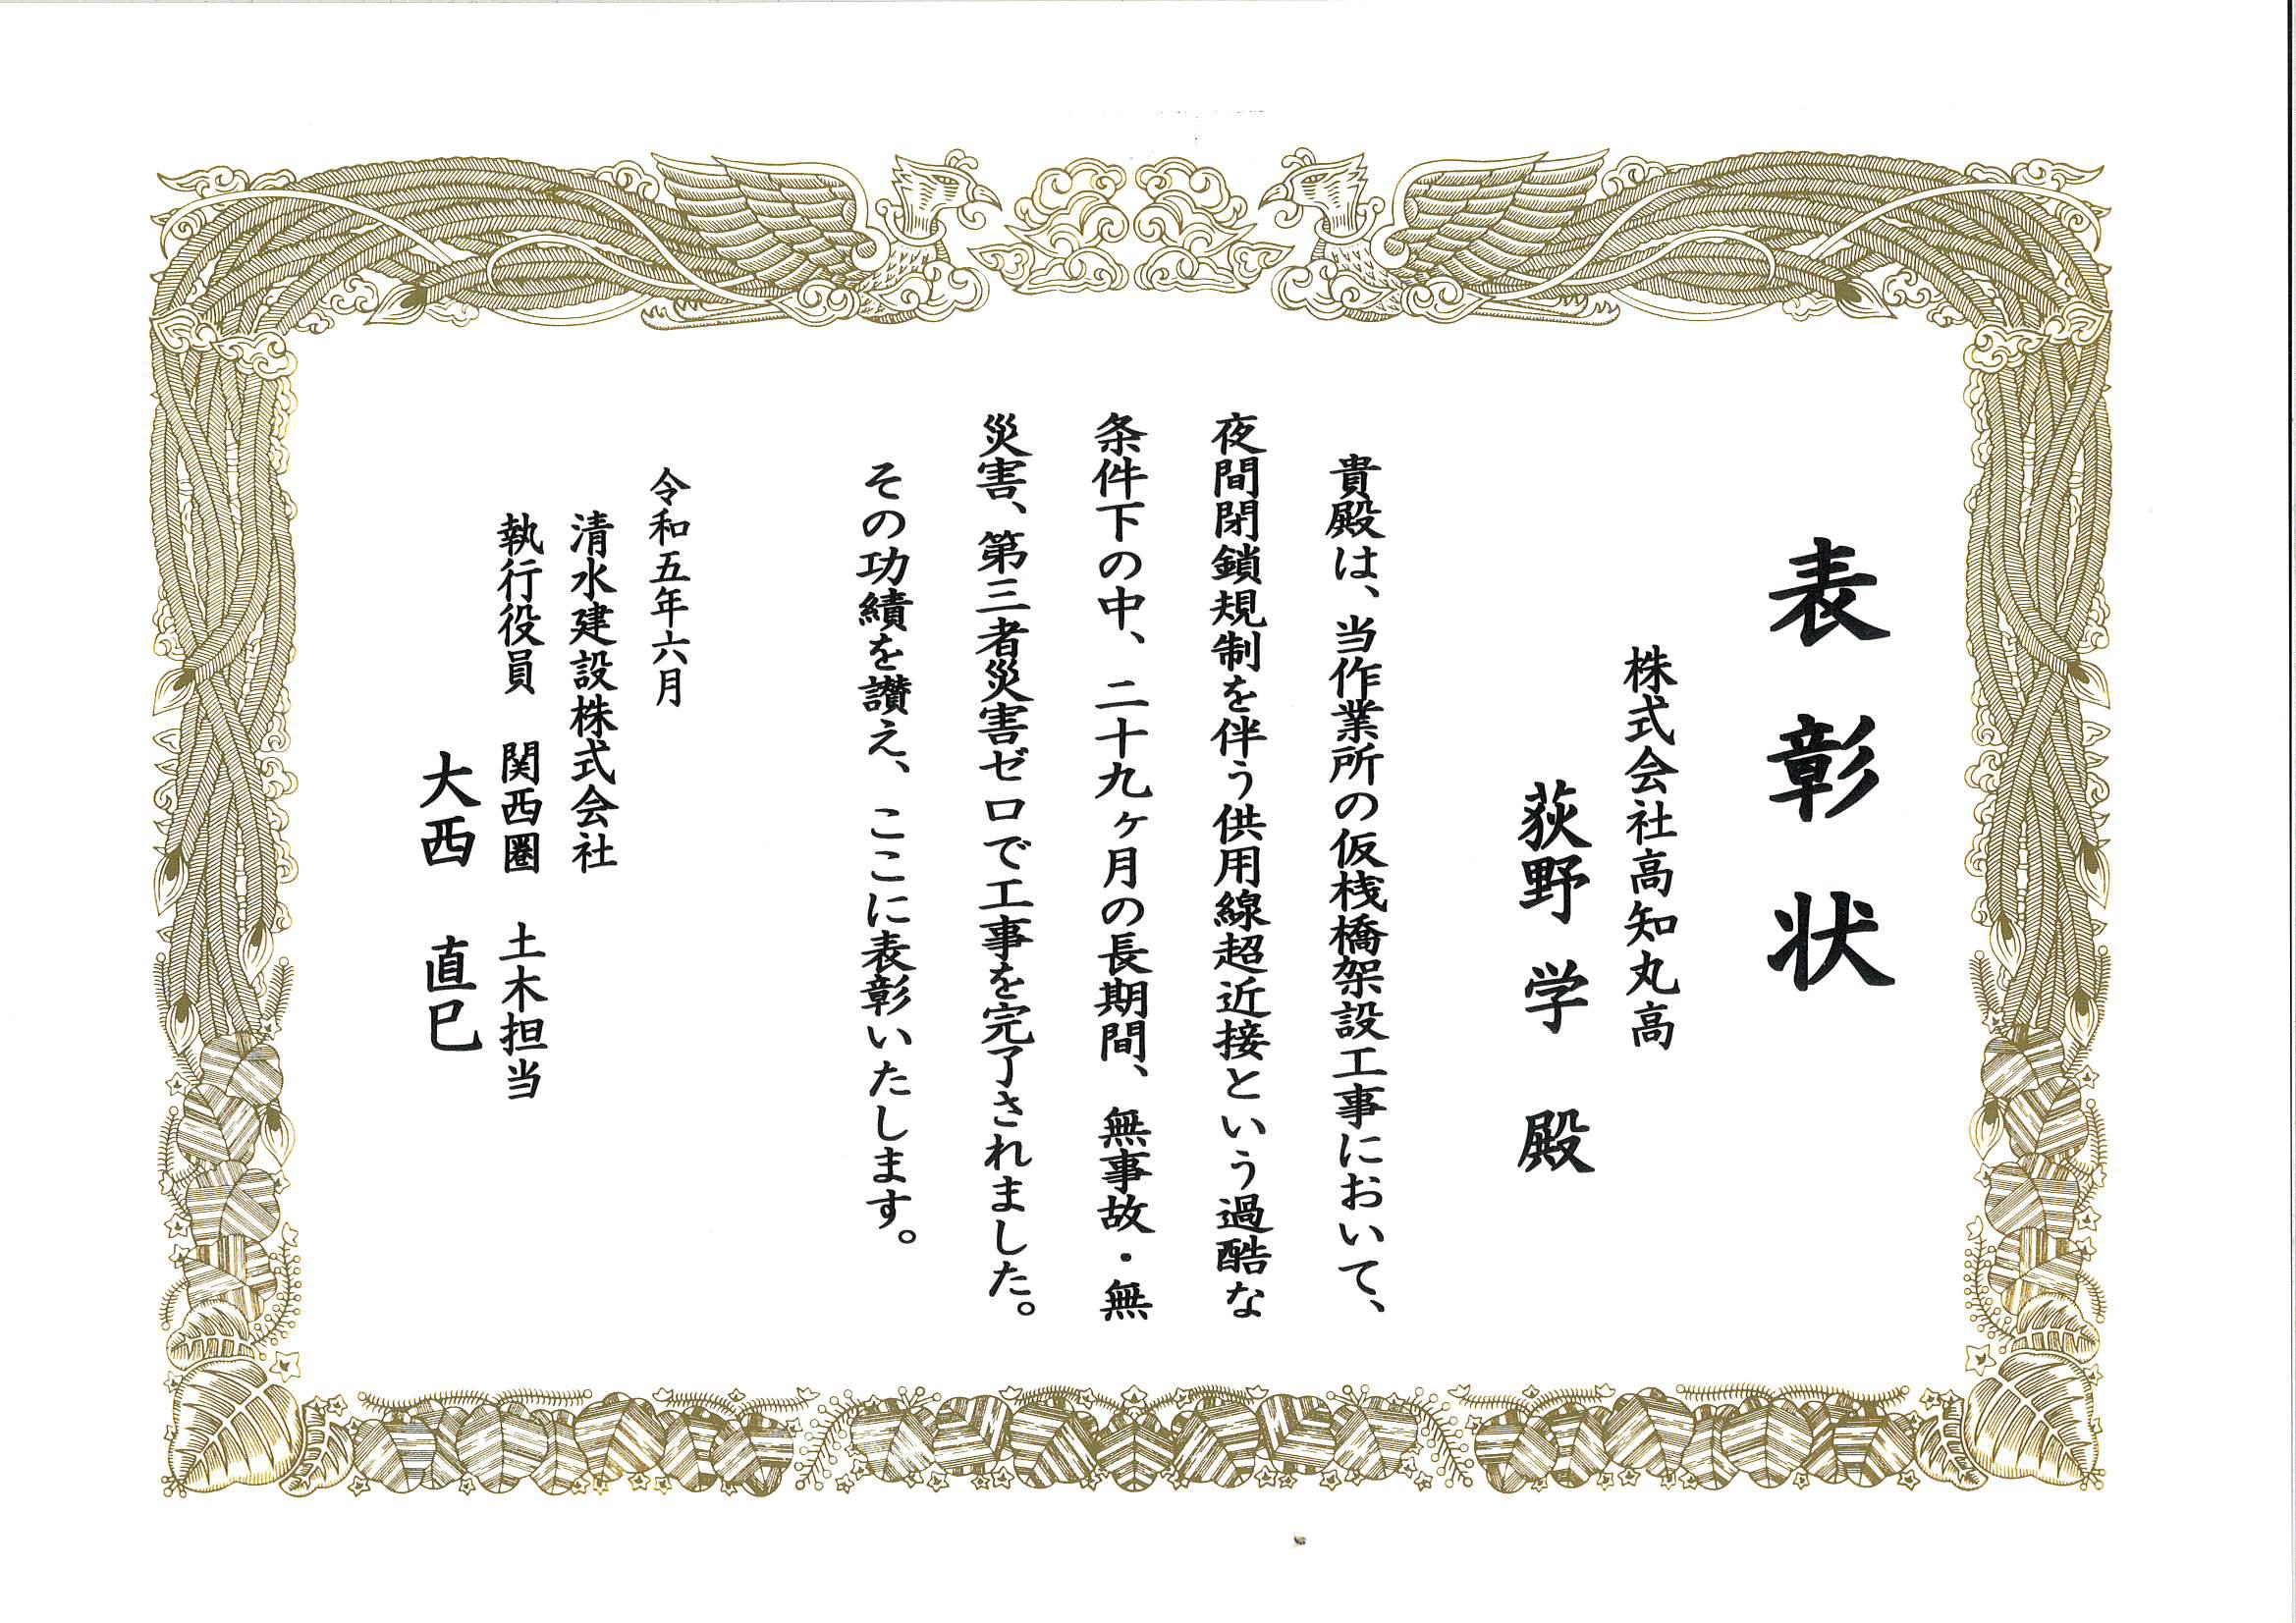 表彰状
株式会社高知丸高
荻野 学 殿
貴殿は、当作業所の仮桟橋架設工事において、
夜間閉鎖規制を伴う供用線超近接という過酷な
条件下の中、二十九ヶ月の長期間、無事故・無
災害、第三者災害ゼロで工事を完了されました。
その功績を讃え、ここに表彰いたします。
令和五年六月
清水建設株式会社
執行役員 関西圏 土木担当
大西 直巳